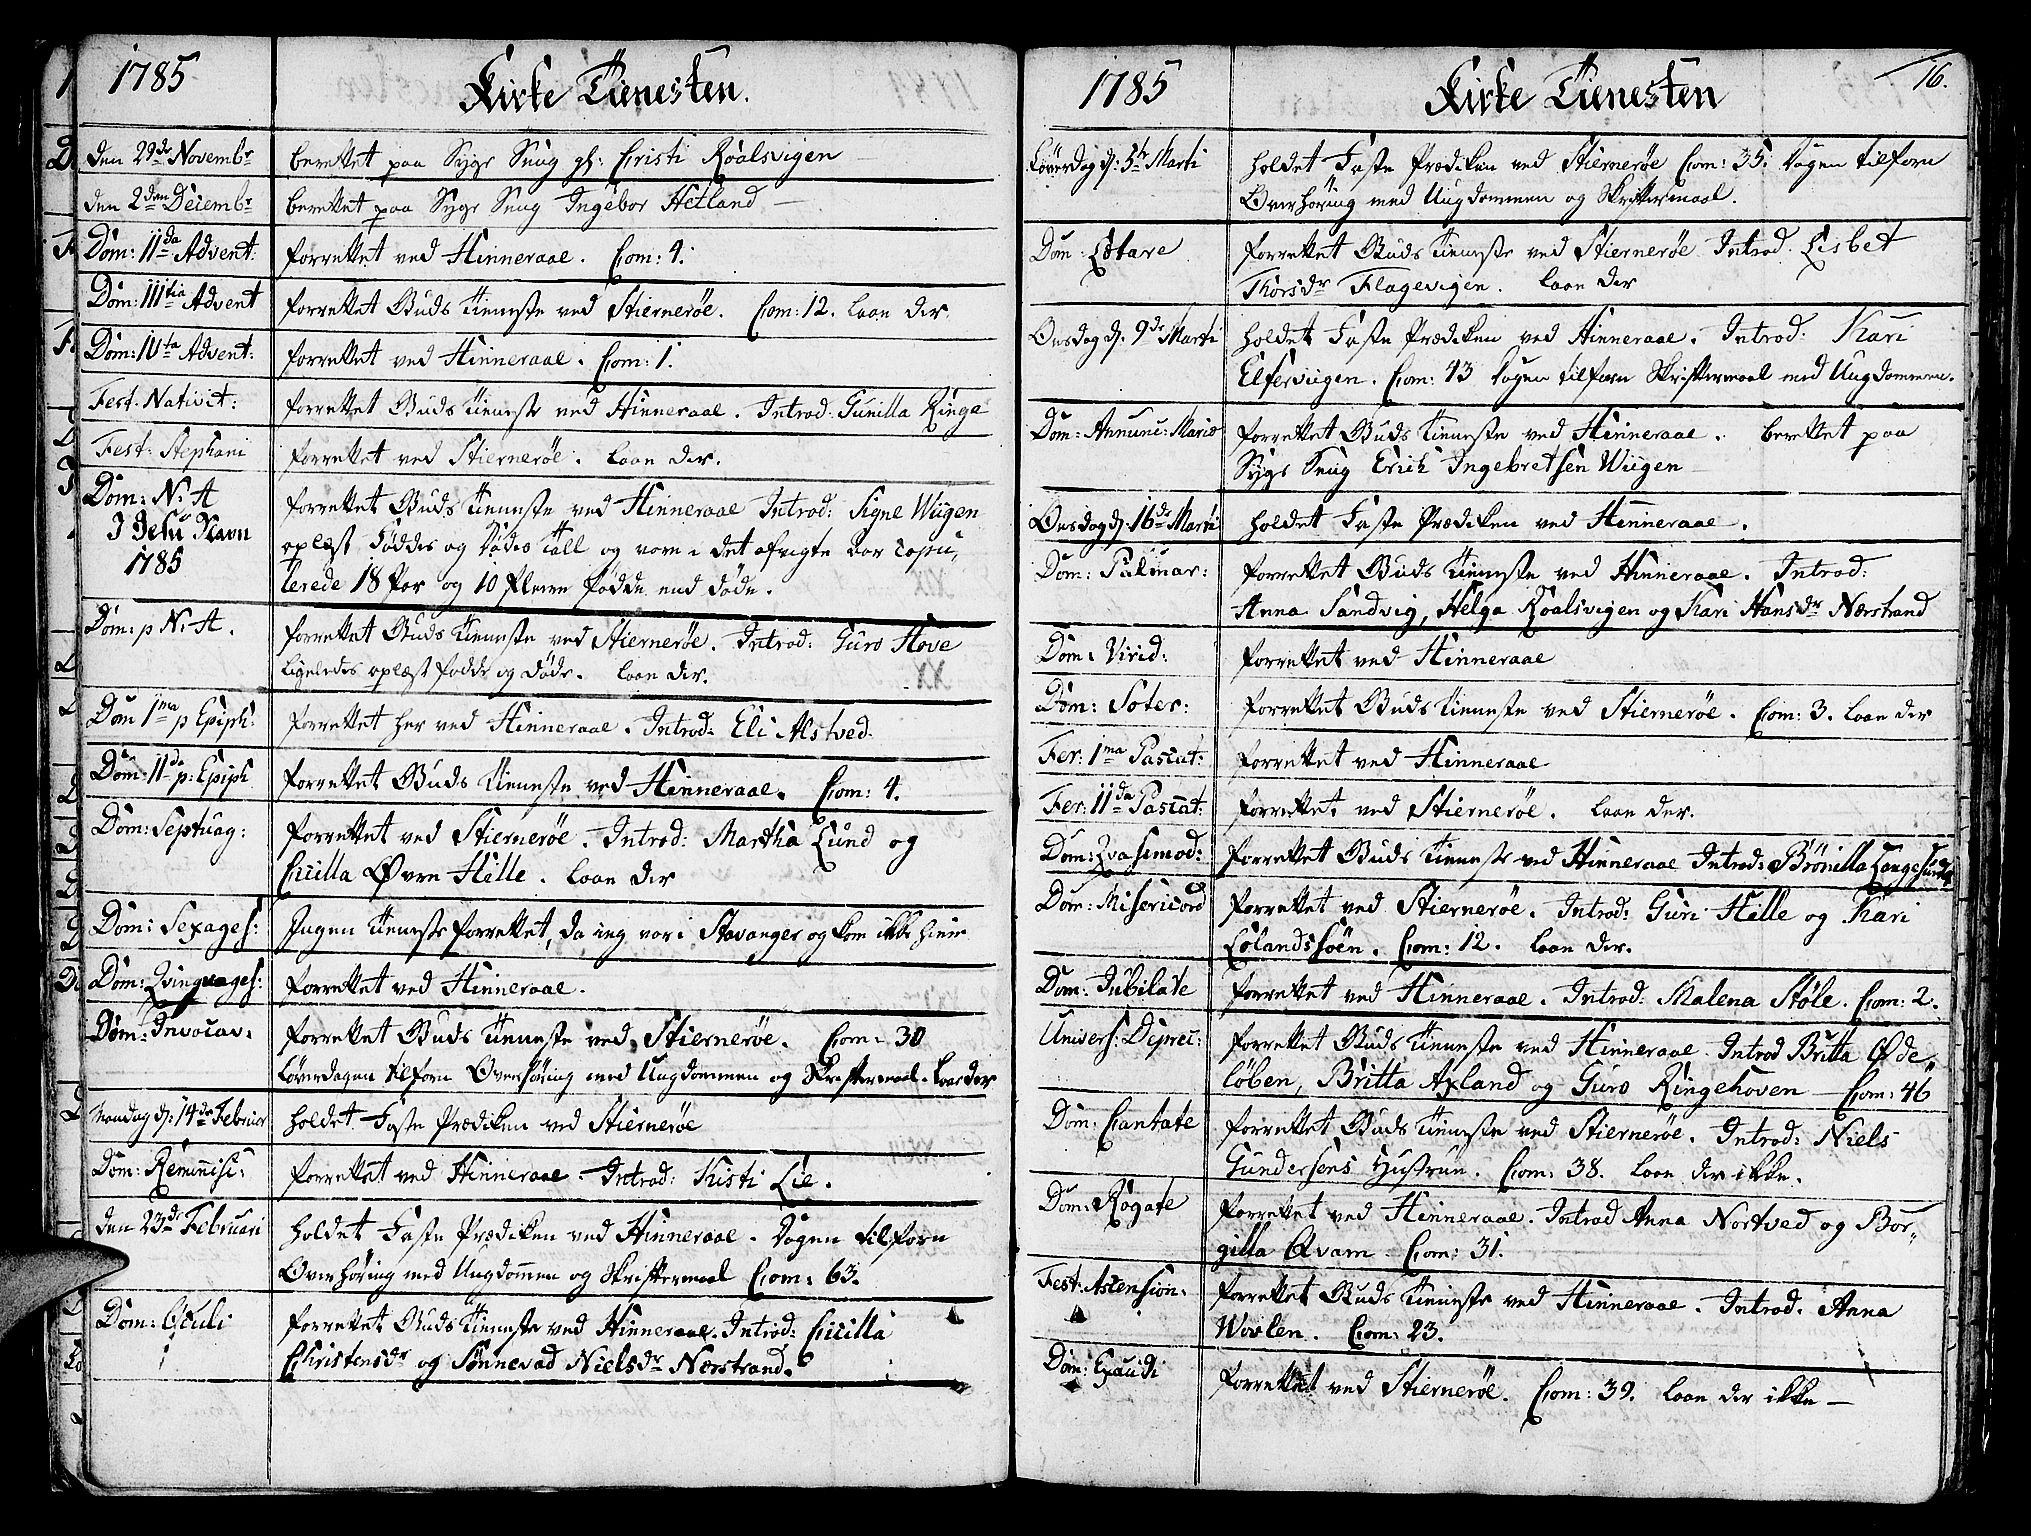 1785 Kirke Tienesten.
den 29de Novembr berettet paa Syge Seng gl: Cristi Roalsvigen
den 2den Decembr berettet paa Syge Seng Ingebor Hetland
Dom: IIda Advent: forrettet ved Hinneraae. Com: 4.
Dom: IIItia Advent forrettet Guds Tieneste ved Stiernerøe. Com: 12. laae der
Dom: IVta Advent: forrettet ved Hinneraae. Com: 1.
Fest: Nativit: forrettet Guds Tieneste ved Hinneraae. Introd: Gunilla Ringe
Fest: Stephani forrettet ved Stiernerøe. laae der.
Dom: N: A forrettet Guds Tieneste ved Hinneraae Introd: Signe Wiigen
I Jesu Navn oplæst Føddes og Dødes Tall og vare i det afvigte Aar copu,
1785 lerede 18 Par og 10 flere fødde end døde.
Dom: p N: A. forrettet Guds Tieneste ved Stiernerøe. Introd: Guro Hove
ligeledes oplæst fødde og døde. laae der.
Dom 1ma p Epiph: forrettet her ved Hinneraae. Introd: Eli Alstved.
Dom: IIda p: Epiph forrettet Guds Tieneste ved Hinneraae. Com: 4.
Dom: Septuag: forrettet ved Stiernerøe. Introd: Martha Lund og
Cicilla Øvre Hille. laae der
Dom: Sexages: Ingen Tieneste forrettet, da ieg var i Stavanger og kom ikke hiem
Dom: Qvinqvages: forrettet ved Hinneraae.
Dom: Invocav: forrettet Guds Tieneste ved Stiernerøe. Com: 30
Løverdagen tilforn Overhøring med Ungdommen og Skriftermaal. laae der
Mandag d: 14de Februar holdet Faste Prædiken ved Stiernerøe
Dom: Reminisc: forrettet ved Hinneraae. Introd: Kisti Lie.
den 23de Februari holdet Faste Prædiken ved Hinneraae. Dagen tilforn
Overhøring med Ungdommen og Skriftermaal Com: 63.
Dom: Oculi forrettet Guds Tieneste ved Hinneraae. Introd: Cicilla
Christensdr og Sønnevad Nielsdr Nærstrand.
1785 Kirke Tienesten 16.
Løverdag d: 5te Marti holdet Faste Prædiken ved Stiernerøe Com: 35. Dagen tilforn
Overhøring med Ungdommen og Skriftermaal.
Dom: Lætare forrettet Guds Tieneste ved Stiernerøe Introd: Lisbet
Thorsdr Flagevigen. laae der
Onsdag d. 9de Marti holdet Faste Prædiken ved Hinneraae. Introd: Kari
Elfervigen. Com: 43 Dagen tilforn Skriftermaal med Ungdommen.
Dom: Annunc: Mariæ forrettet Guds Tieneste ved Hinneraae. berettet paa
Syge Seng Erich Ingebretsen Wiigen
Onsdag d: 16de Marti holdet Faste Prædiken ved Hinneraae.
Dom: Palmar: forrettet Guds Tieneste ved Hinneraae. Introd:
Anna Sandvig, Helga Roalsvigen og Kari Hansdr Nærstrand
Dom: Virid: forrettet ved Hinneraae
Dom: Soter: forrettet Guds Tieneste ved Stiernerøe. Com: 3. laae der
Fer: 1ma Pascat: forrettet ved Hinneraae
Fer: IIda Pascat: forrettet ved Stiernerøe. laae der.
Dom: Qvasimod: forrettet Guds Tieneste ved Hinneraae Introd: Brønilla
Dom: Misericord forrettet ved Stiernerøe. Introd: Guri Hille og Kari
Eølandssøen. Com: 12. laae der.
Dom: Jubilate forrettet ved Hinneraae. Introd: Malena Støle. Com: 2.
Univers: Diprec: forrettet Guds Tieneste ved Hinneraae Introd Britta Øde,
løben, Britta Axland og Guro Ringehoven Com: 46
Dom: Cantate forrettet Guds Tieneste ved Stiernerøe. Introd: Niels
Gundersens Hustrue. Com: 38. laae der ikke.
Dom: Rogate forrettet ved Hinneraae. Introd Anna Nortved og Bor,,
gilla Qvam. Com: 31.
Fest: Ascension. forrettet Guds Tieneste ved Hinneraae. Introd. Anna
Com: 23.
Dom: Exaudi forrettet ved Stiernerøe. Com: 39. laae der ikke